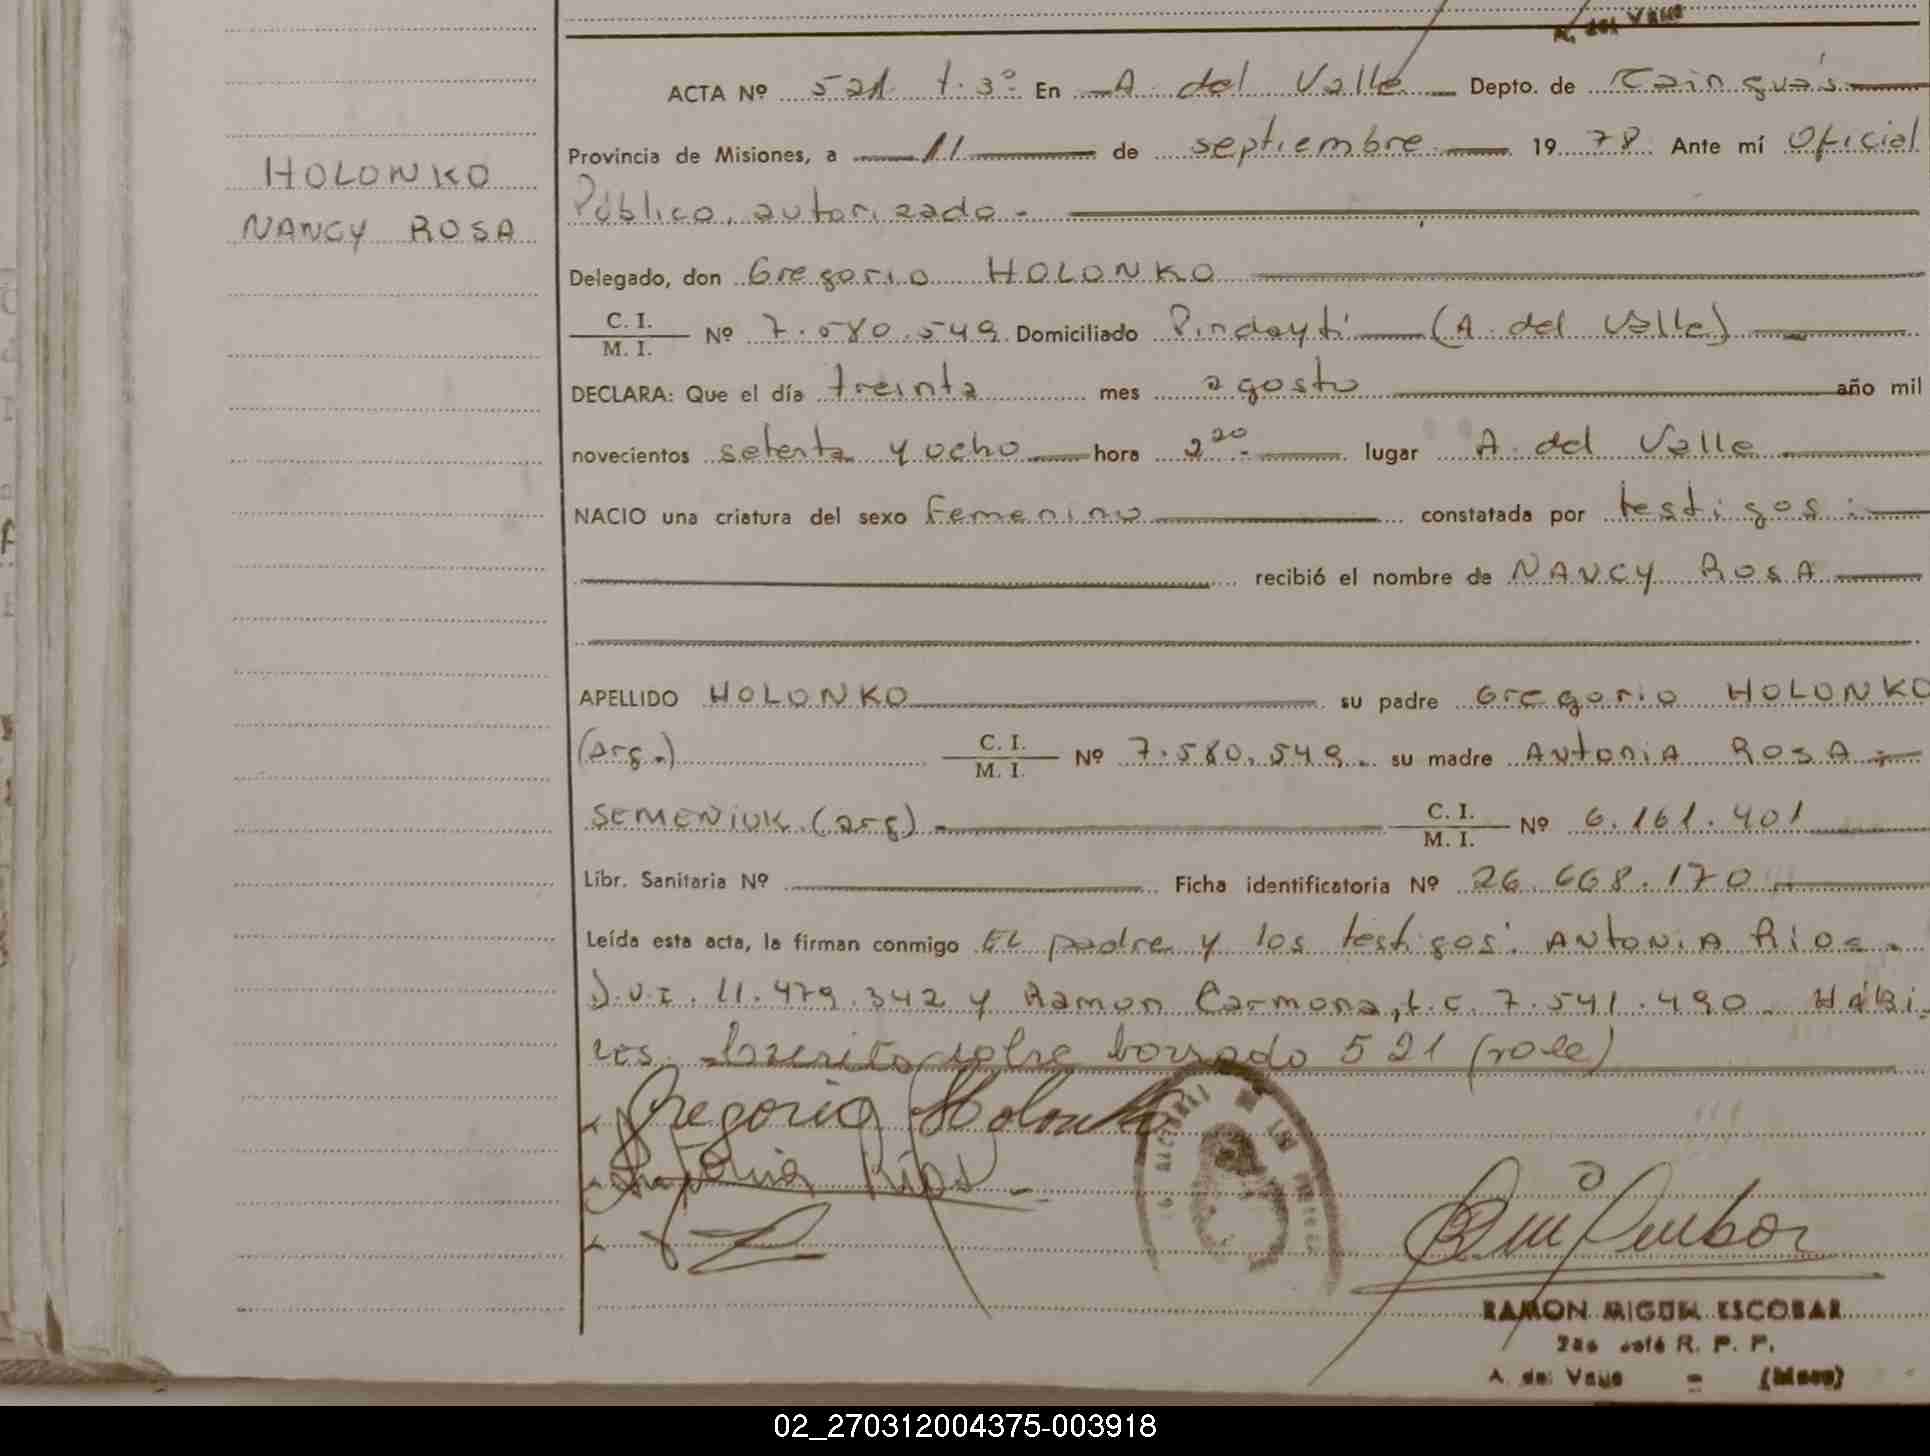 A. del Valle
ACTA Nº 521 t. 3º En A. del Valle Depto. de Cainguás
Provincia de Misiones, a 11 de septiembre 19 78. Ante mí Oficial
Público, autorizado.
HOLONKO
NANCY ROSA
Delegado, don Gregorio HOLONKO
C. I. / M. I. Nº 7.580.549. Domiciliado Pindaytí (A. del Valle)
DECLARA: Que el día treinta mes agosto año mil
novecientos setenta y ocho hora 2 20. lugar A. del Valle
NACIO una criatura del sexo femenino constatada por testigos:
recibió el nombre de NANCY ROSA
APELLIDO HOLONKO su padre Gregorio HOLONKO
(arg.) C. I. / M. I. Nº 7.580.549. su madre ANtoniA ROSA
SEMENIUK (arg) C. I. / M. I. Nº 6.161.401
Libr. Sanitaria Nº Ficha identificatoria Nº 26.668.170
Leída esta acta, la firman conmigo El padre y los testigos: ANtoNiA Ríos.
11.479.342 y Ramon Carmona, L.C. 7.541.490. Hábi
les. sobre borrado 521 (vale)
Gregorio Holonko
Antonia Ríos
RAMON MIGUEL ESCOBAR
2do Jefe R. P. P.
A. del Valle - (Mnes)
02_270312004375-003918